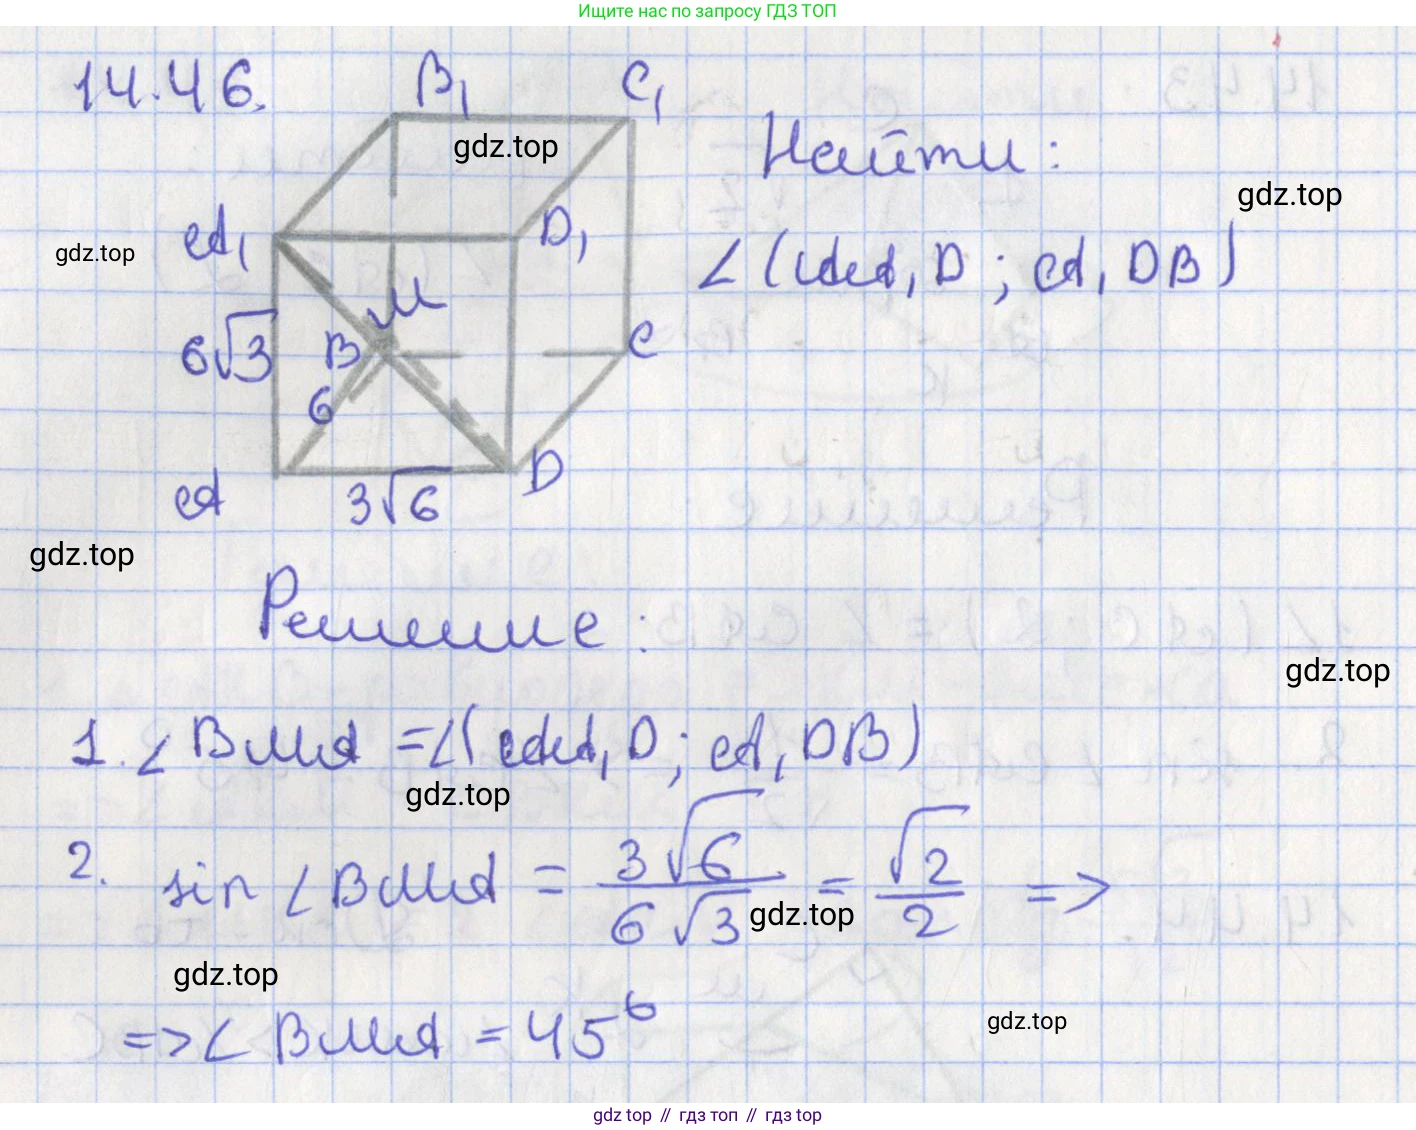 Ищите нас по запросу ГДЗ ТОП
14.46.
B₁
C₁
gdz.top
Найти:
gdz.top
A₁
D₁
gdz.top
∠(AA₁D; A₁DB)
M
6√3
B
C
6
A
3√6
D
gdz.top
Решение:
gdz.top
1. ∠BMA = ∠(AA₁D; A₁DB)
gdz.top
2. sin ∠BMA = 3√6/6√3 = √2/2 =>
gdz.top
gdz.top
=> ∠BMA = 45°
gdz.top
gdz top // гдз топ // гдз top